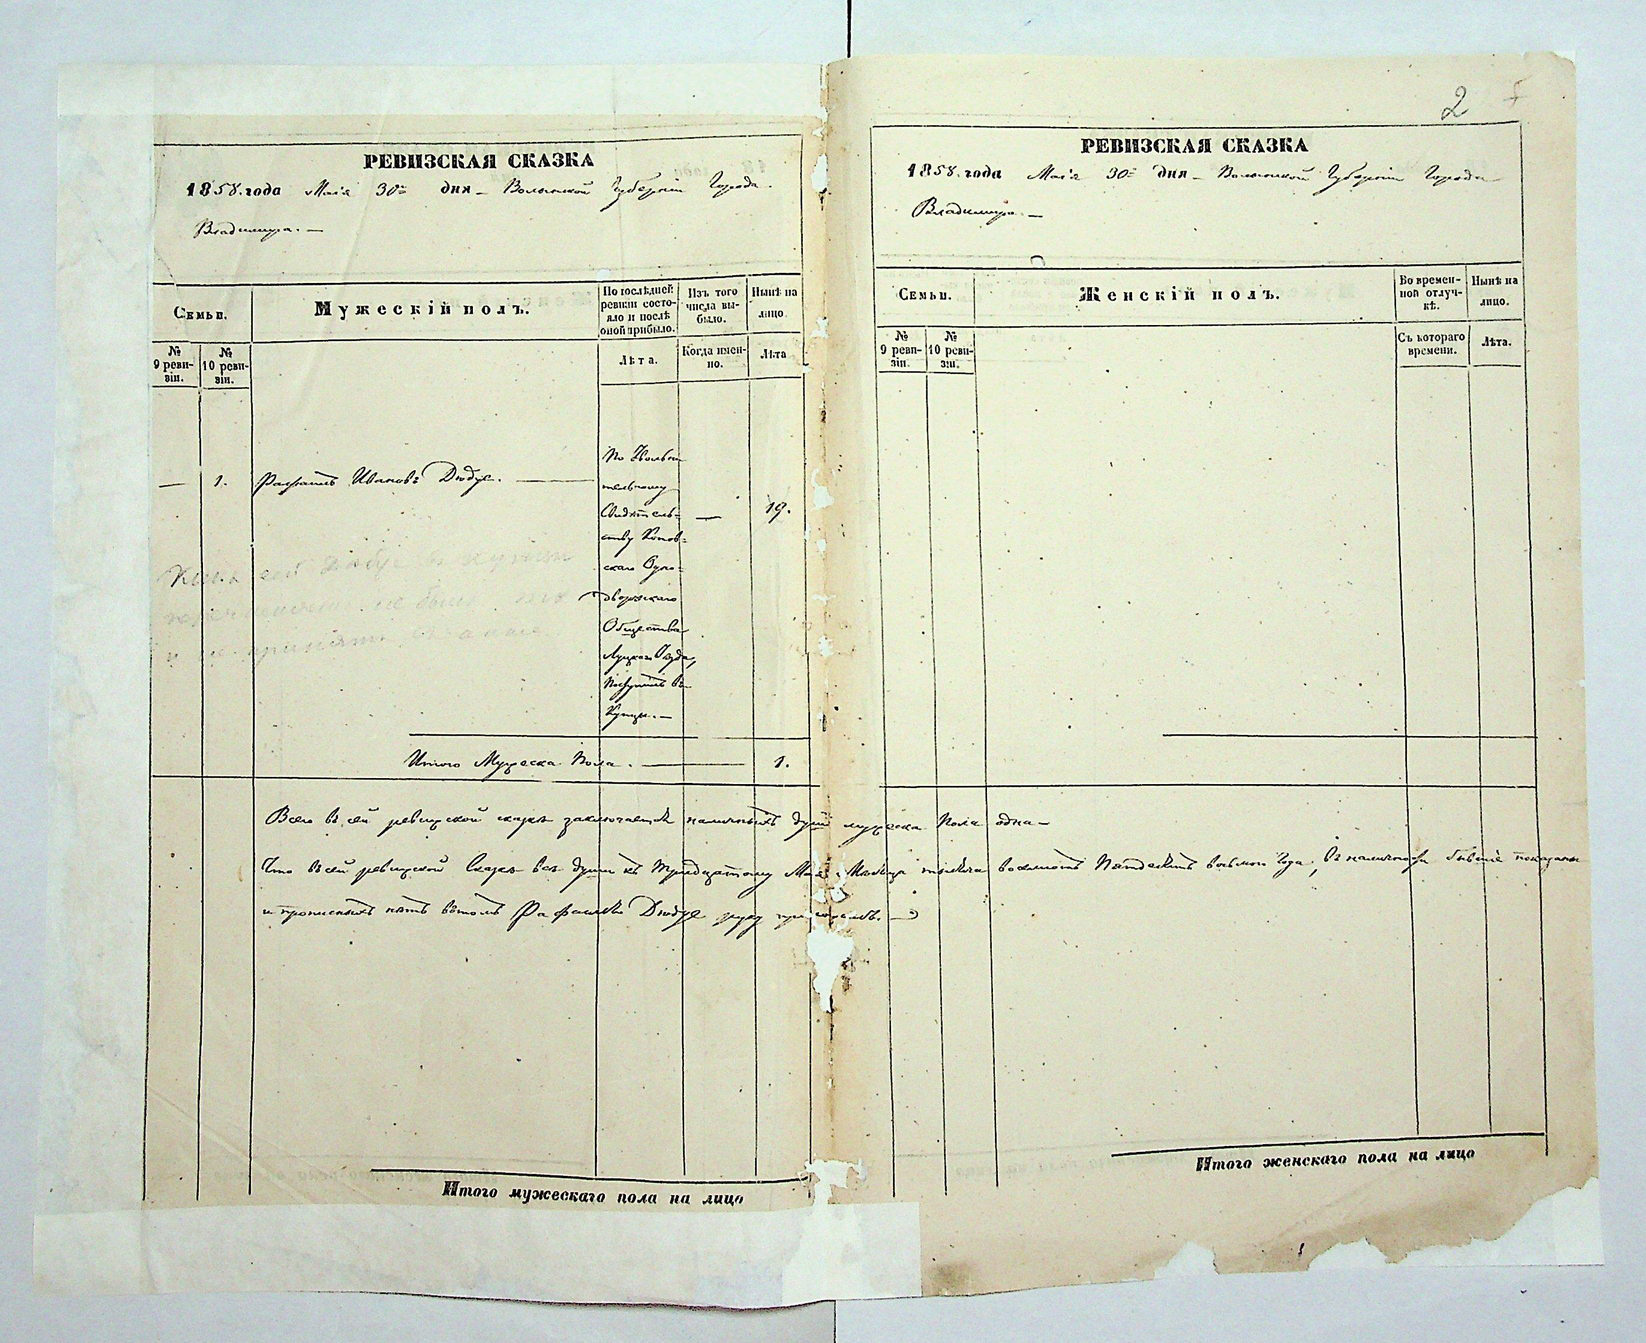 2
РЕВИЗСКАЯ СКАЗКА
1858. года Маія 30го дня Волынской Губерніи Города
Владимира.
Семьи.
Мужескій полъ.
По послѣдней ревизіи состояло и послѣ оной прибыло.
Изъ того числа выбыло.
Нынѣ на лицо.
№ 9 ревизіи.
№ 10 ревизіи.
Лѣта.
Когда именно.
Лѣта
— 1. Рафаилъ Ивановъ Дюбуе. — 19.
По Уволни
тельному
Свидѣтель=
ству
скаго Одно=
дворческаго
Общества
Луцкаго Уѣзда,
поступилъ въ
Купцы. —
Итого Мужеска Пола. — 1.
Всего въ сей ревизской сказкѣ заключается наличныхъ душъ мужеска пола одна —
Что въ сей ревизской Сказкѣ всѣ души къ тридцатому Маія Мѣсяца тысяча восемьсотъ пятдесятъ восьмого Года, въ наличности бывшіе показаны
и прописныхъ нѣтъ въ томъ Рафаилъ Дюбуе руку приложилъ. —
Итого мужескаго пола на лицо
РЕВИЗСКАЯ СКАЗКА
1858. года Маія 30го дня — Волынской Губерніи Города
Владимира. —
Семьи.
Женскій полъ.
Во временной отлучкѣ.
Нынѣ на лицо.
№ 9 ревизіи.
№ 10 ревизіи.
Съ котораго времени.
Лѣта.
Итого женскаго пола на лицо